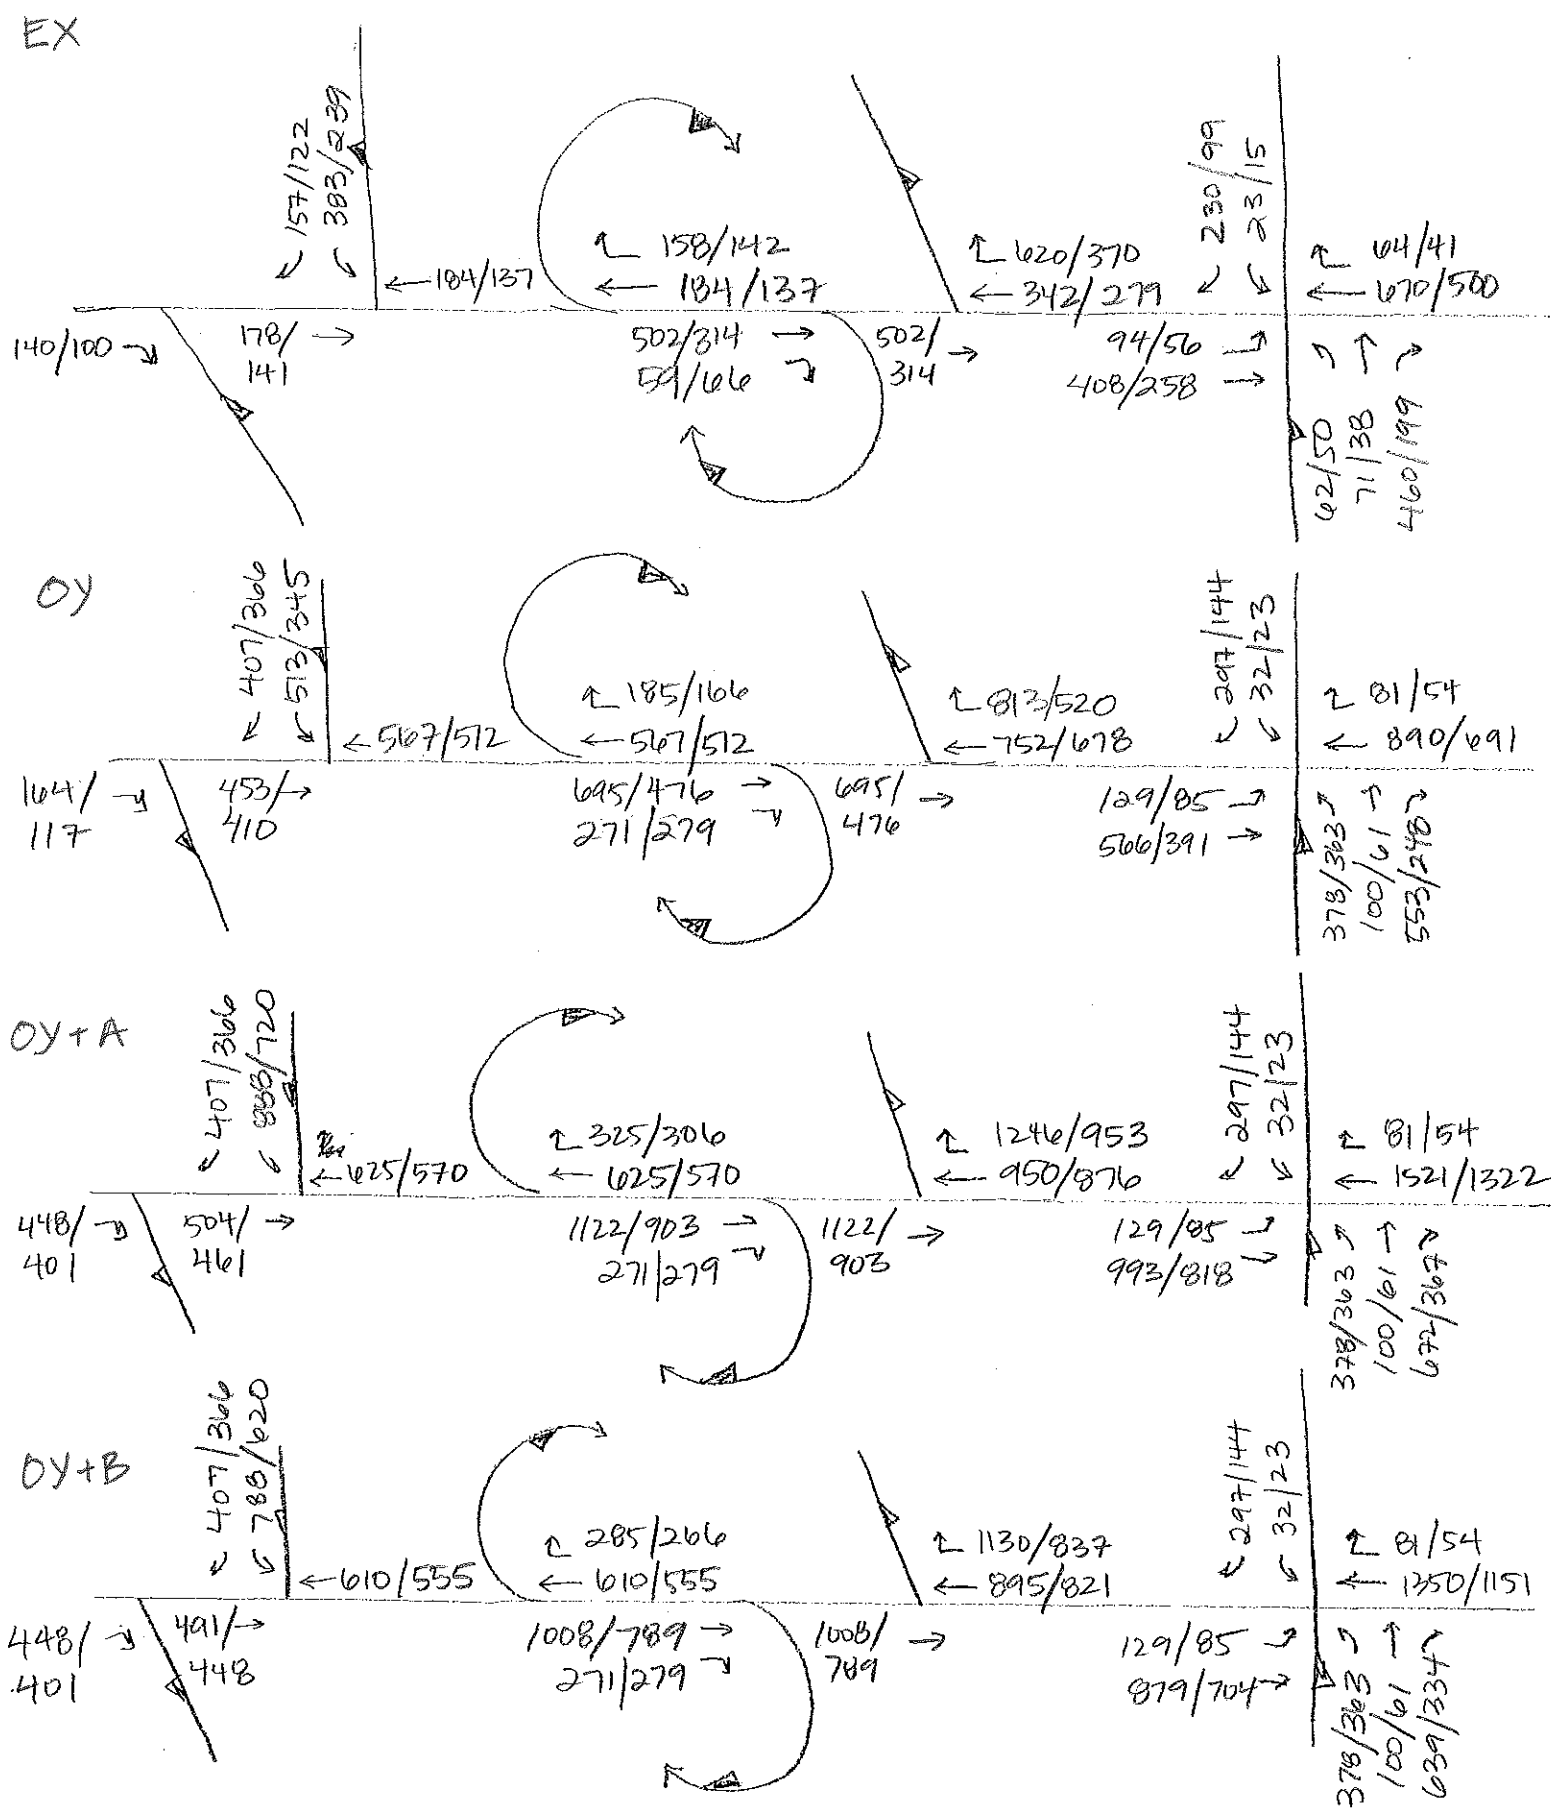 EX
157/122
383/239
←184/137
158/142
← 184/137
620/370
← 342/279
230/99
23/15
64/41
← 670/500
140/100
178/ →
141
502/314 →
59/66
502/ →
314
94/56
408/258 →
62/50
71/38
460/199
OY
407/366
513/345
←567/512
185/166
←567/512
813/520
← 752/678
297/144
32/23
81/54
← 890/691
164/
117
453/→
410
695/476 →
271/279
695/ →
476
129/85
566/391 →
378/363
100/61
553/248
OY+A
407/366
888/720
←625/570
325/306
← 625/570
1246/953
← 950/876
297/144
32/23
81/54
← 1521/1322
448/
401
504/ →
461
1122/903 →
271/279
1122/ →
903
129/85
993/818
378/363
100/61
672/367
OY+B
407/366
788/620
←610/555
285/266
← 610/555
1130/837
← 895/821
297/144
32/23
81/54
← 1350/1151
448/
401
491/→
448
1008/789 →
271/279
1008/ →
789
129/85
879/704→
378/363
100/61
639/334